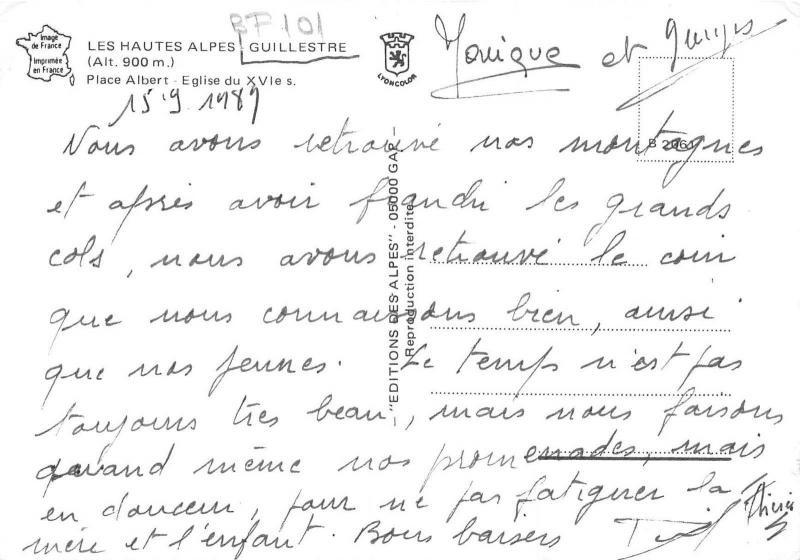 BF 101
Image
de France
Imprimée
en France
LES HAUTES ALPES GUILLESTRE
(Alt. 900 m.)
Place Albert - Eglise du XVIe s.
LYONCOLOR
15.9.1989
Monique et
Nous avons retrouvé nos montagnes
et après avoir franchi les grands
cols, nous avons retrouvé le coin
que nous connaissons bien, ainsi
que nos jeunes. Le temps n'est pas
toujours très beau, mais nous faisons
quand même nos promenades, mais
en douceur, pour ne pas fatiguer la
mère et l'enfant. Bons baisers
"EDITIONS DES ALPES" - 05000 GAP -
Reproduction interdite